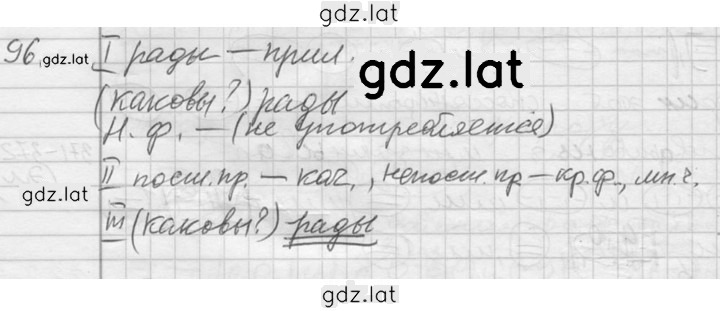 gdz.lat
96 gdz.lat I рады — прил.
gdz.lat
(каковы?) рады
Н. ф. — (не употребляется)
II пост. пр. — кач., непост. пр — кр. ф., мн. ч.
gdz.lat
III (каковы?) рады
gdz.lat